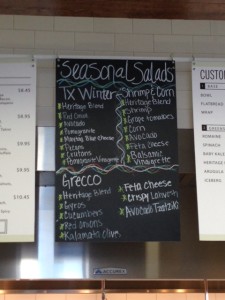 Seasonal Salads
Tx Winter
Heritage Blend
Red Onion
Avocado
Pomegranite
Maytag Blue Cheese
Pecans
Croutons
Pomegranite Vinaigrette
Shrimp & Corn
Heritage Blend
Shrimp
Grape tomatoes
Corn
Avocado
Feta Cheese
Balsamic
Vinaigrette
Grecco
Heritage Blend
Gyros
Cucumbers
Red Onions
Kalamata olives
Feta cheese
Crispy
Avocado
CUSTO
BASE
BOWL
FLATBREAD
WRAP
GREENS
ROMAINE
SPINACH
BABY KALE
HERITAGE
ARUGULA
ICEBERG
$9.45
$8.95